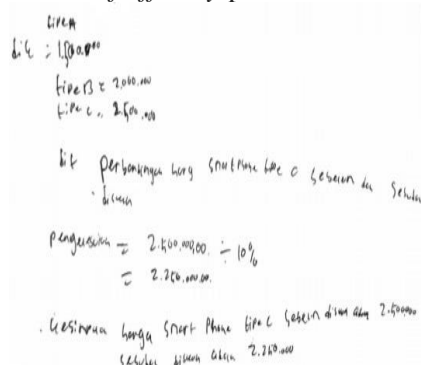 tipe A
dik = 1.500.000
tipe B = 2.000.000
tipe C = 2.500.000
dit perbandingan harga smartphone tipe C sebelum dan sesudah
diskon
= 2.500.000,00 ÷ 10%
= 2.250.000.00.
. Kesimpulan harga Smart Phone tipe C sebelum diskon 2.500000
diskon 2.250.000